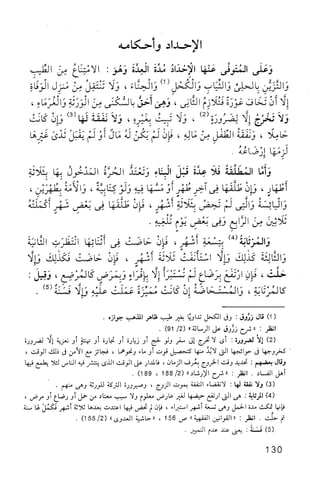 الإحداد وأحكامه
وَعَلَى المُتَوَفَّى عَنْهَا الإِحْدَادُ مُدَّةَ الْعِدَّةِ وَهُوَ : الامْتِنَاعُ مِنَ الطِّيبِ
وَالتَّزَيُّنِ بِالحلي وَالثِّيَابِ وَالْكُحْلِ (1) وَالْحِنَّاءِ ، وَلَا تَنْتَقِلُ مِنْ مَنْزِلِ الْوَفَاةِ
إِلَّا أَنْ تَخَافَ عَوْرَةً فَتُلَازِمُ الثَّانِي ، وَهِيَ أَحَقُّ بِالسُّكْنَى مِنَ الْوَرَثَةِ وَالْغُرَمَاءِ ،
وَلَا تَخْرُجُ إِلَّا لِضَرُورَةٍ (2) ، وَلَا تَبِيتُ بِغَيْرِهِ ، وَلَا نَفَقَةَ لَهَا (3) وَإِنْ كَانَتْ
حَامِلًا ، وَنَفَقَةُ الطِّفْلِ مِنْ مَالِهِ ، فَإِنْ لَمْ يَكُنْ لَهُ مَالٌ أَوْ لَمْ يَقْبَلْ ثَدْيَ غَيْرِهَا
لَزِمَهَا إِرْضَاعُهُ .
وَأَمَّا المُطَلَّقَةُ فَلَا عِدَّةَ قَبْلَ الْبِنَاءِ وَتَعْتَدُّ الحُرَّةُ المَدْخُولُ بِهَا بِثَلَاثَةِ
أَطْهَارٍ ، وَإِنْ طَلَّقَهَا فِي آخِرِ طُهْرٍ أَوْ مَسَّهَا فِيهِ وَلَوْ كِتَابِيَّةً ، وَالْأَمَةُ بِطُهْرَيْنِ ،
وَالْيَائِسَةُ وَالَّتِي لَمْ تَحِضْ بِثَلَاثَةِ أَشْهُرٍ ، فَإِنْ طَلَّقَهَا فِي بَعْضِ شَهْرٍ أَكْمَلَتْهُ
ثَلَاثِينَ مِنَ الرَّابِعِ وَفِي بَعْضِ يَوْمٍ تُلْغِيهِ .
وَالمُرْتَابَةُ (4) بِتِسْعَةِ أَشْهُرٍ ، فَإِنْ حَاضَتْ فِي أَثْنَائِهَا انْتَظَرَتِ الثَّانِيَةَ
وَالثَّالِثَةَ كَذَلِكَ وَإِلَّا اسْتَأْنَفَتْ ثَلَاثَةَ أَشْهُرٍ ، فَإِنْ حَاضَتْ فَكَذَلِكَ وَإِلَّا
حَلَّتْ ، فَإِنِ ارْتَفَعَ بِرَضَاعٍ لَمْ تُسْتَبْرَأْ إِلَّا بِأَقْرَاءٍ وَبِمَرَضٍ كَالمُرْضِعِ ، وَقِيلَ :
كَالمُرْتَابَةِ ، وَالمُسْتَحَاضَةُ إِنْ كَانَتْ مُمَيِّزَةً عَمِلَتْ عَلَيْهِ وَإِلَّا فَسَنَةً (5) .
(1) قال زروق : وفي الكحل تداويًا بغير طيب ظاهر المذهب جوازه .
انظر : «شرح زروق على الرسالة» (91/2) .
(2) إلا لضرورة : أي لا تخرج إلى سفر ولو لحج أو زيارة أو تجارة أو تهنئة أو تعزية إلا لضرورة
كخروجها في حوائجها التي لابد منها كتحصيل قوت أو ماء ونحوهما ، فجائز مع الأمن في ذلك الوقت ،
وقال بعضهم : تحديد وقت الخروج بعرف الزمان ، فالمدار على الوقت الذي ينتشر فيه الناس لئلا يطمع فيها
أهل الفساد . انظر : «شرح الإرشاد» (188/2 ، 189) .
(3) ولا نفقة لها : لانقضاء النفقة بموت الزوج ، وصيرورة التركة للورثة وهي منهم .
(4) المرتابة : هي التي ارتفع حيضها لغير عارض معلوم ولا سبب معتاد من حمل أو رضاع أو مرض ،
فإنها تمكث مدة الحمل وهي تسعة أشهر استبراء ، فإن لم تحض فيها اعتدت بعدها ثلاثة أشهر فكمل لها سنة
ثم حلت . انظر : «القوانين الفقهية» ص 156 ، «حاشية العدوي» (155/2) .
(5) فَسَنَةٌ : يعني عند عدم التمييز .
130